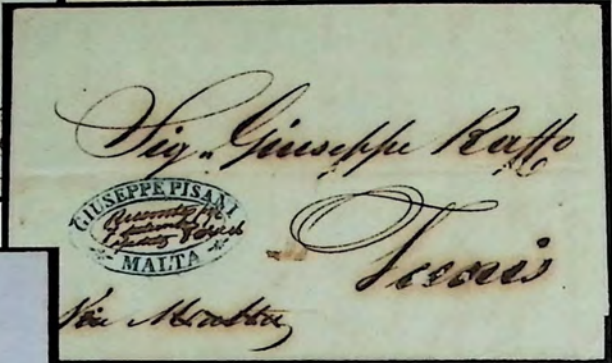 Sig. Giuseppe Raffo
GIUSEPPE PISANI
MALTA
Tunis
Via Malta